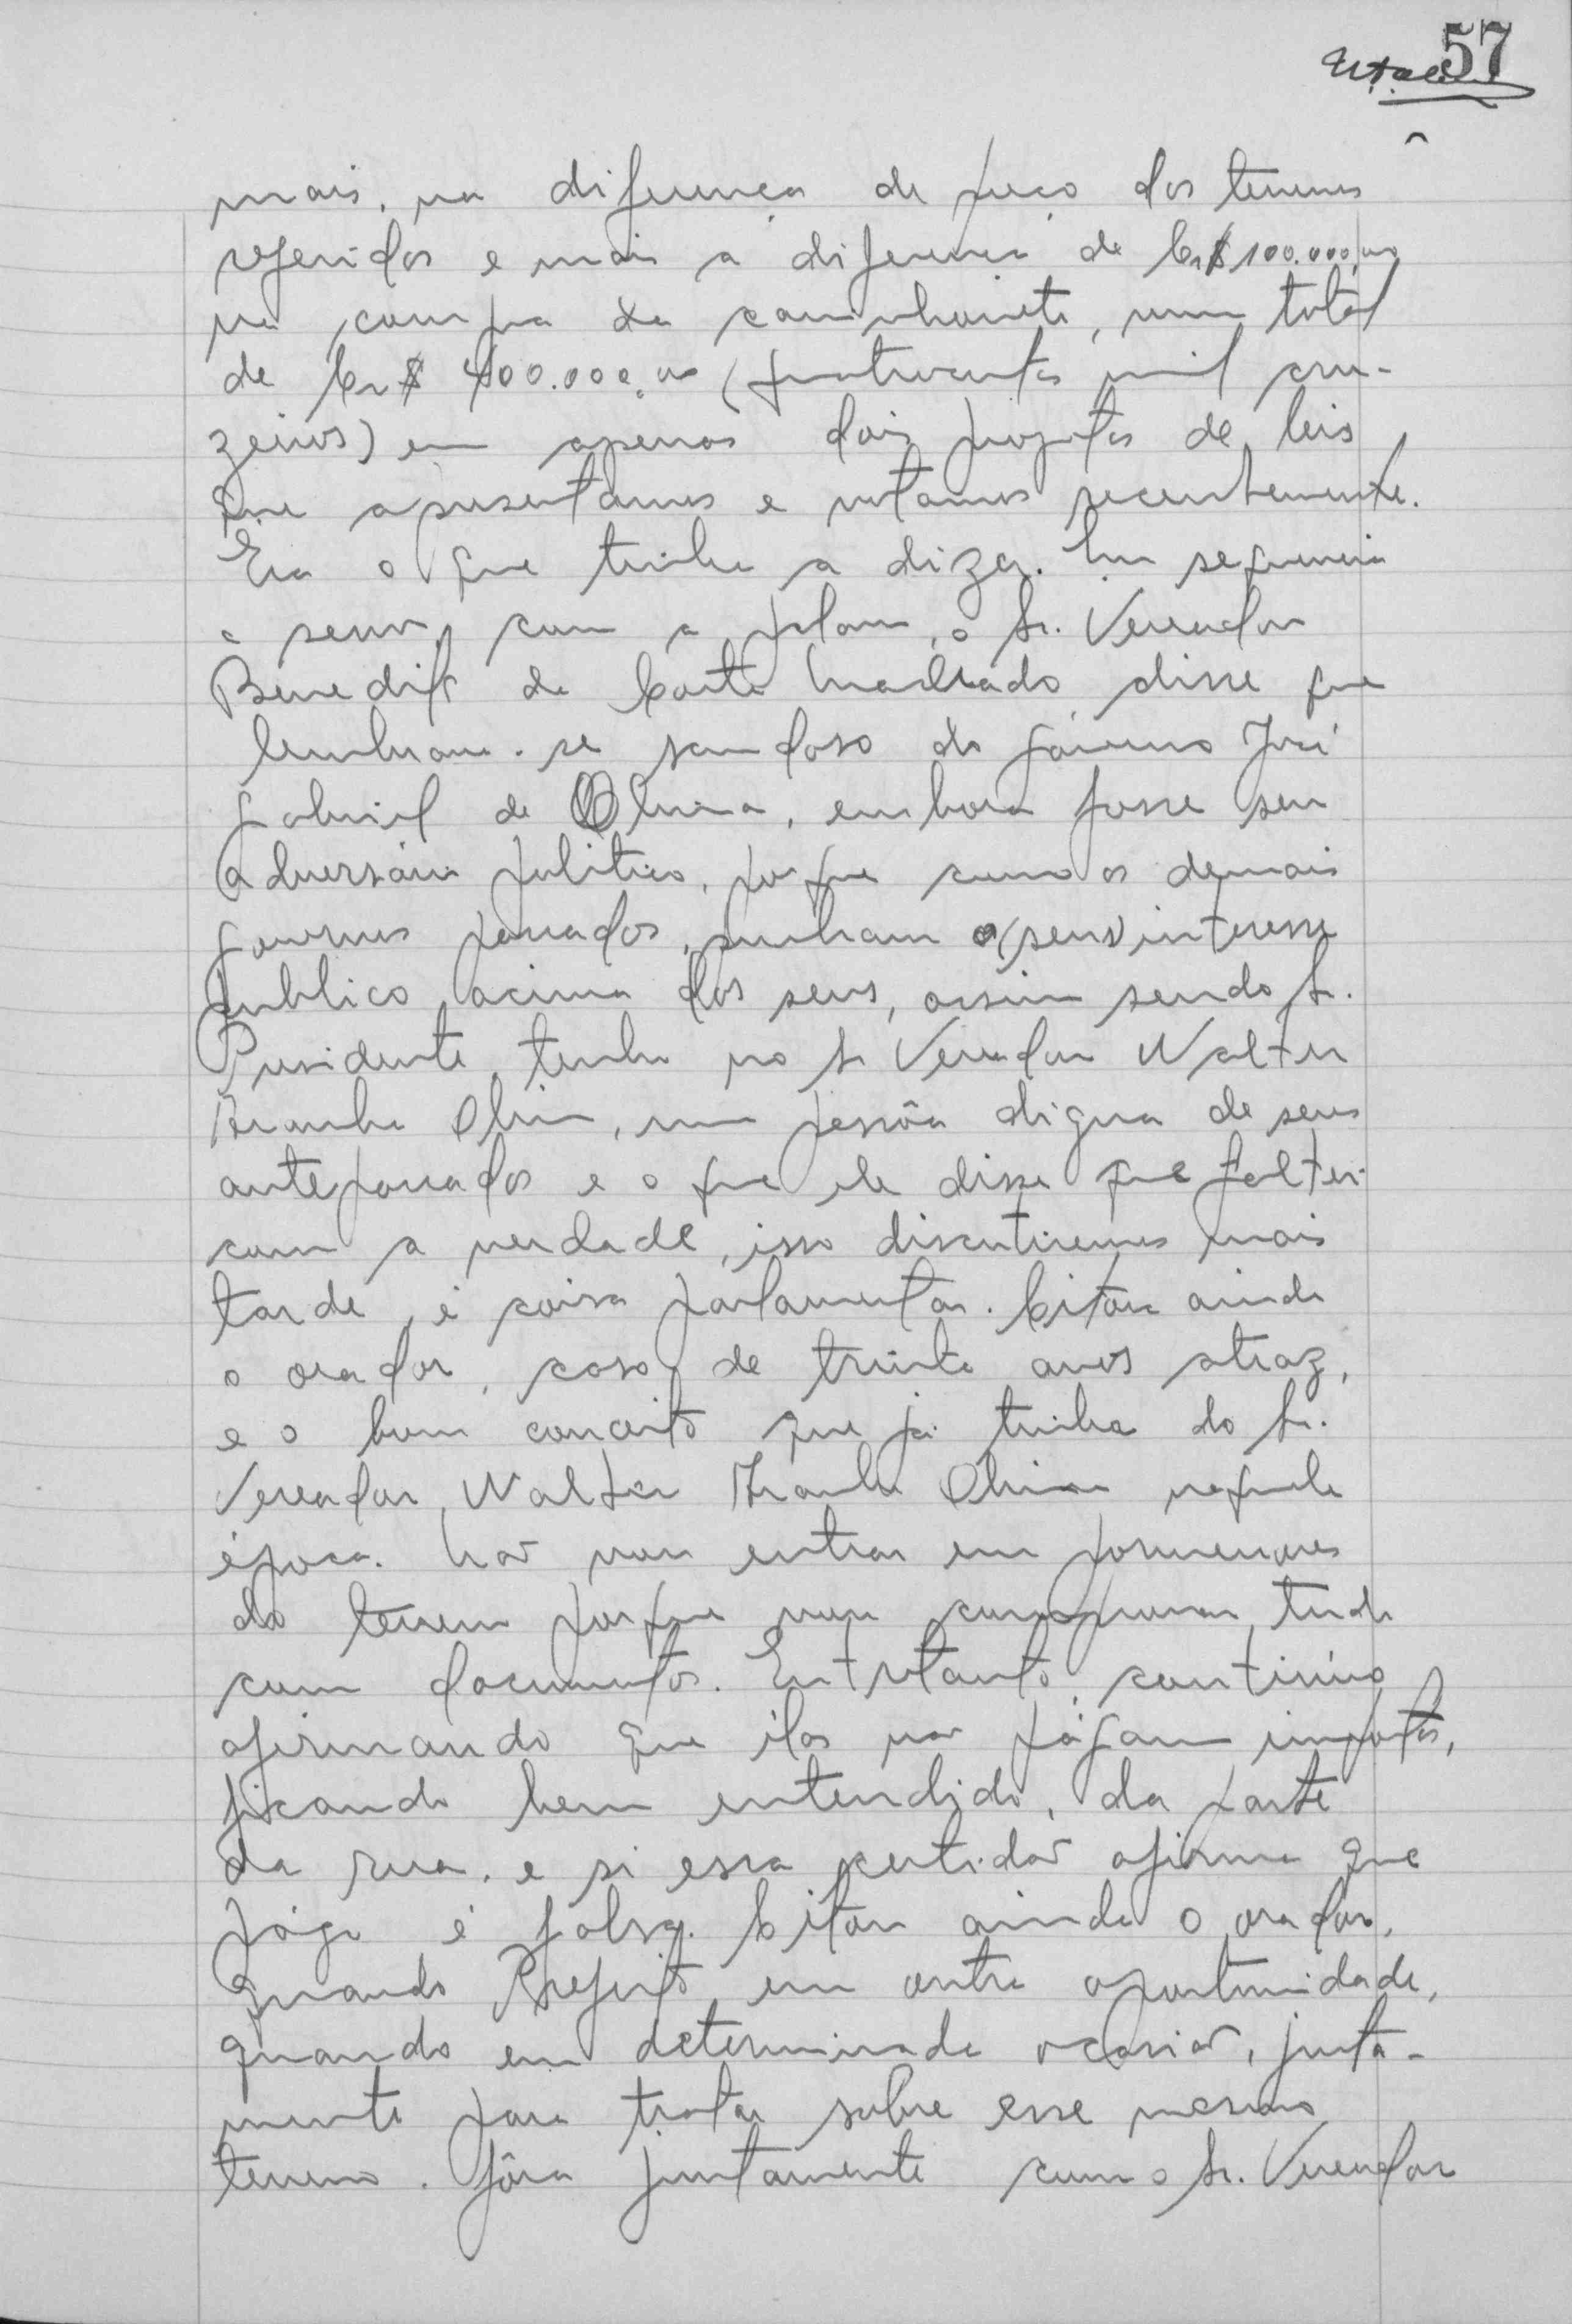 57
mais, na diferença de preço dos terrenos
referidos e mais a diferença de Cr$ 100.000,00
na compra da caminhonete, num total
de Cr$ 400.000,00 (quatrocentos mil cru-
zeiros) em apenas dois projetos de leis
que apresentamos e votamos recentemente.
Era o que tinha a dizer. Em sequencia
a sessão, com a palavra, o Sr. Vereador
Benedito de Castro Machado disse que
lembrava-se saudoso do govêrno José
Gabriel de Oliveira, embora fosse seu
adversário politico, porque como os demais
governos passados, punham o (seus) interesse
publico acima dos seus, assim sendo Sr.
Presidente tenho no Sr Vereador Walter
Aranha Oliva, uma pessôa digna de seus
antepassados e o que ele disse que faltei
com a verdade, isso discutiremos mais
tarde, é coisa parlamentar. Citou ainda
o orador, caso de trinta anos atraz,
e o bom conceito que já tinha do Sr.
Vereador Walter Aranha naquela
época. Não vou entrar em pormenores
do terreno porque vou comprovar tudo
com documentos. Entretanto, continúo
afirmando que êlas não págam impostos,
ficando bem entendido, da parte
da rua, e si essa certidão afirma que
pága é falsa. Citou ainda o orador,
quando Prefeito em outra oportunidade,
quando em determinada ocasião, justa-
mente para tratar sobre esse mesmo
terreno. fôra juntamente com o Sr. Vereador